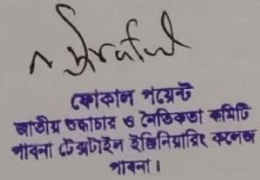 ফোকাল পয়েন্ট
জাতীয় শুদ্ধাচার ও নৈতিকতা কমিটি
পাবনা টেক্সটাইল ইঞ্জিনিয়ারিং কলেজ
পাবনা।